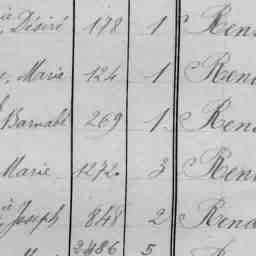 ie Désiré 178 1 Ren
e, Marie 124 1 Ren
Barnabé 269 1 Ren
Marie 1272 3 Ren
ie Joseph 848 2 Rena
2486 5